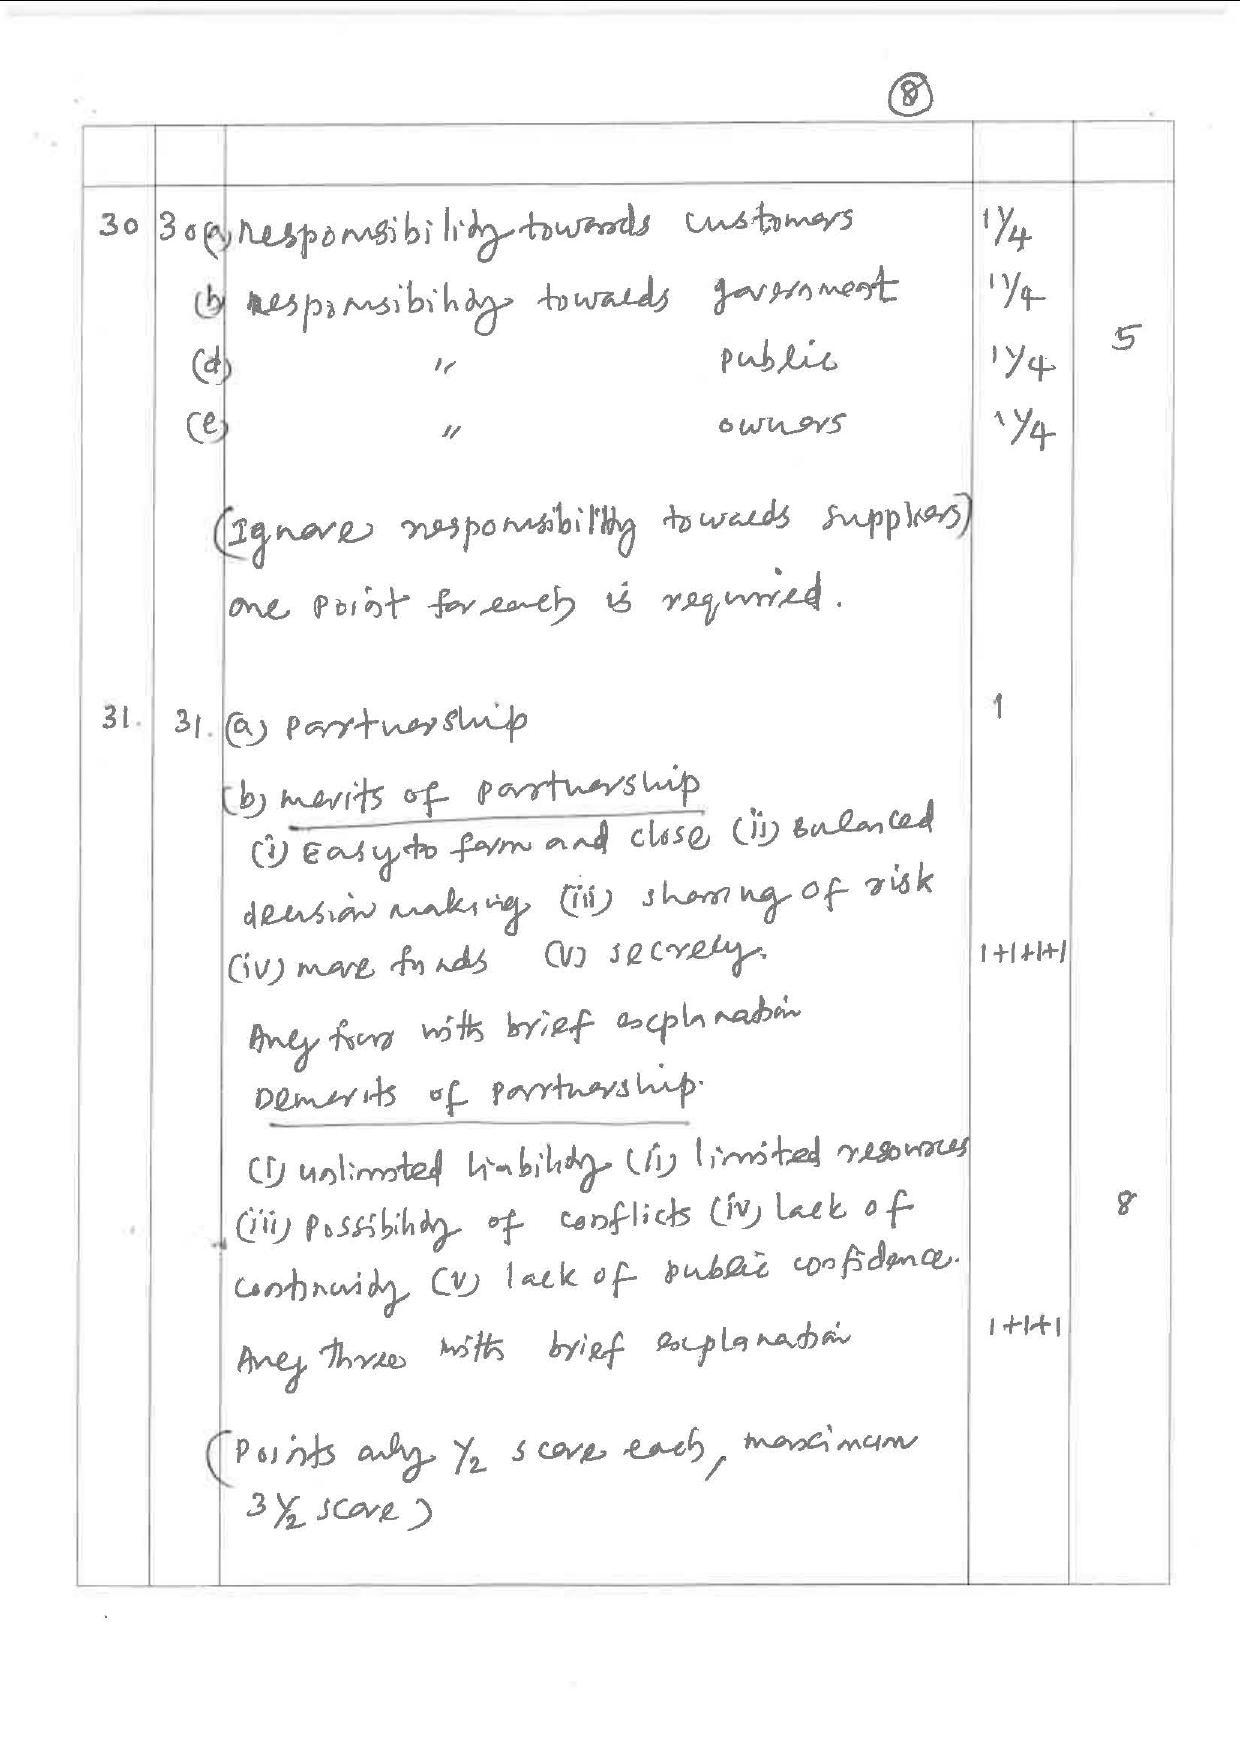 8
30 30(a) Responsibility towards customers 1 1/4
(b) Responsibility towards government 1 1/4
5
(d) " public 1 1/4
(e) " owners 1 1/4
(Ignore responsibility towards suppliers)
one point for each is required.
31. 31. (a) Partnership 1
(b) merits of partnership
(i) Easy to form and close (ii) Balanced
decision making (iii) sharing of risk
(iv) more funds (v) secrecy. 1+1+1+1
Any four with brief explanation
Demerits of partnership.
(i) unlimited liability (ii) limited resources
(iii) Possibility of conflicts (iv) lack of 8
continuity (v) lack of public confidence.
Any three with brief explanation 1+1+1
(Points only 1/2 score each, maximum
3 1/2 score)